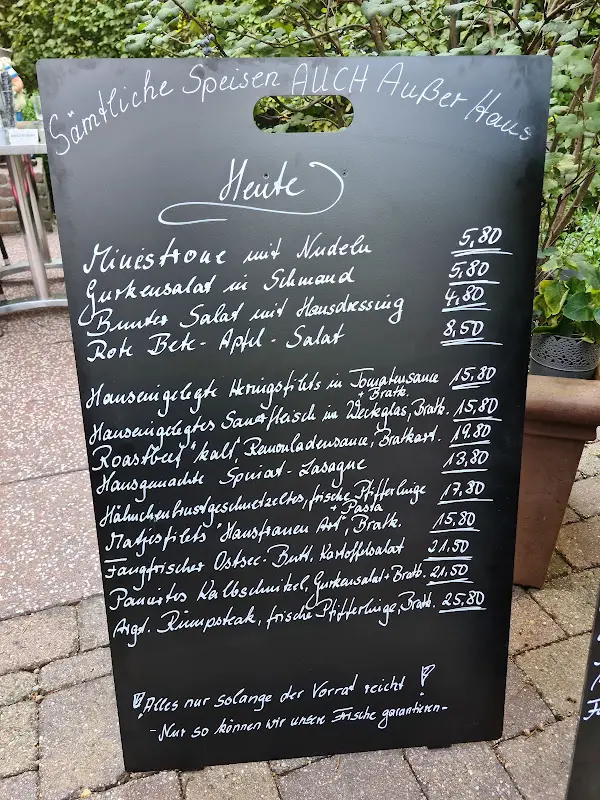 Sämtliche Speisen AUCH Außer Haus
Heute
Minestrone mit Nudeln 5,80
Gurkensalat in Schmand 5,80
Bunter Salat mit Hausdressing 4,80
Rote Bete-Apfel-Salat 8,50
Hauseingelegte Heringsfilets in Tomatensauce 15,80
+ Bratk.
Hauseingelegtes Sauerfleisch im Weckglas, Bratk. 15,80
Roastbeef "kalt", Remouladensauce, Bratkart. 19,80
Hausgemachte Spinat-Lasagne 13,80
Hähnchenbrustgeschnetzeltes, frische Pfifferlinge 17,80
+ Pasta
Matjesfilets "Hausfrauen Art", Bratk. 15,80
Fangfrischer Ostsee-Butt, Kartoffelsalat 21,50
Paniertes Kalbschnitzel, Gurkensalat + Bratk. 21,50
Argt. Rumpsteak, frische Pfifferlinge, Bratk. 25,80
! Alles nur solange der Vorrat reicht !
- Nur so können wir unsere Frische garantieren -